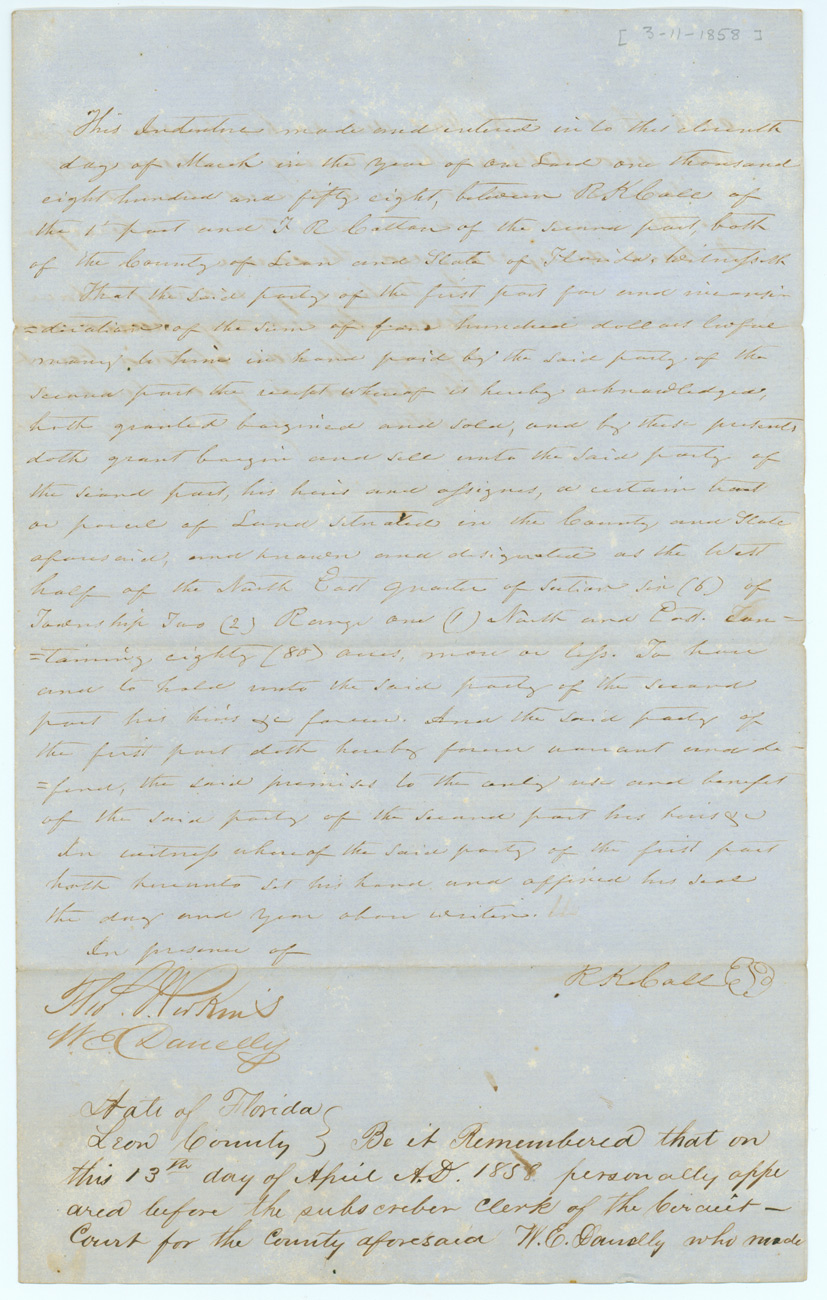 [ 3-11-1858 ]
This Indenture made and entered in to this eleventh
day of March in the year of our Lord one thousand
eight hundred and fifty eight, between R K Call of
the 1st part and F R Cotton of the second part, both
of the County of Leon and State of Florida, Witnesseth
That the said party of the first part for and inconsi-
=deration of the sum of four hundred dollars lawful
money to him in hand paid by the said party of the
second part the receipt whereof is hereby acknowledged,
hath granted bargined and sold, and by these presents,
doth grant bargin and sell unto the said party of
the second part, his heirs and assignes, a certain tract
or parcel of Land situated in the County and State
aforesaid, and known and designated as the West
half of the North East quarter of Section six (6) of
Township Two (2) Range one (1) North and East. Con-=
=taining eighty (80) acres, more or less. To have
and to hold unto the said party of the second
part his heirs &c forever. And the said party of
the first part doth hereby forever warrant and de-=
=fend, the said premises to the only use and benefit
of the said party of the second part his heirs &c
In witness whereof the said party of the first part
hath hereunto set his hand and affixed his seal
the day and year above writen.
In presence of
R K Call
W. E. Danelly
State of Florida
Leon County } Be it Remembered that on
this 13th day of April A.D. 1858 personally appe
ared before the subscriber clerk of the Circuit -
Court for the County aforesaid W. E. Danelly who made